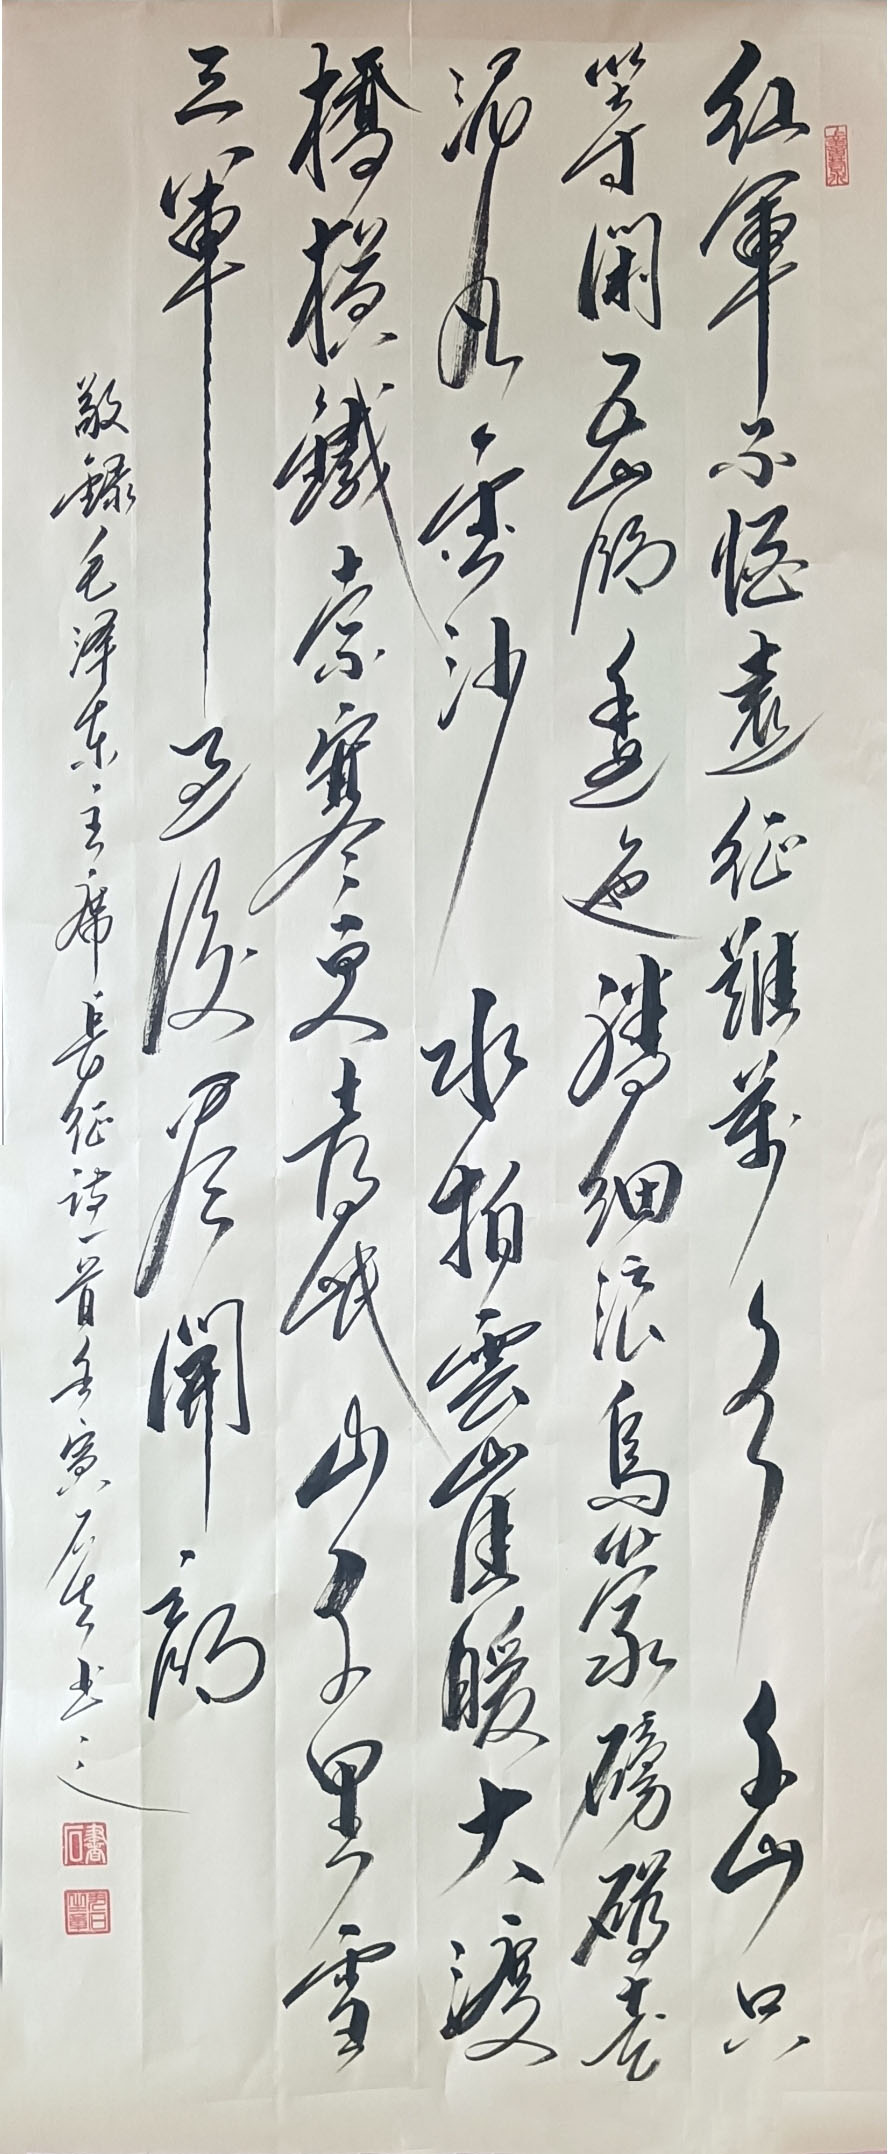 紅軍不怕遠征難萬水千山只
等閑五嶺逶迤騰細浪烏蒙磅礴走
泥丸金沙水拍雲崖暖大渡
橋橫鐵索寒更喜岷山千里雪
三軍過後盡開顏
敬錄毛泽东主席長征詩一首壬寅书之